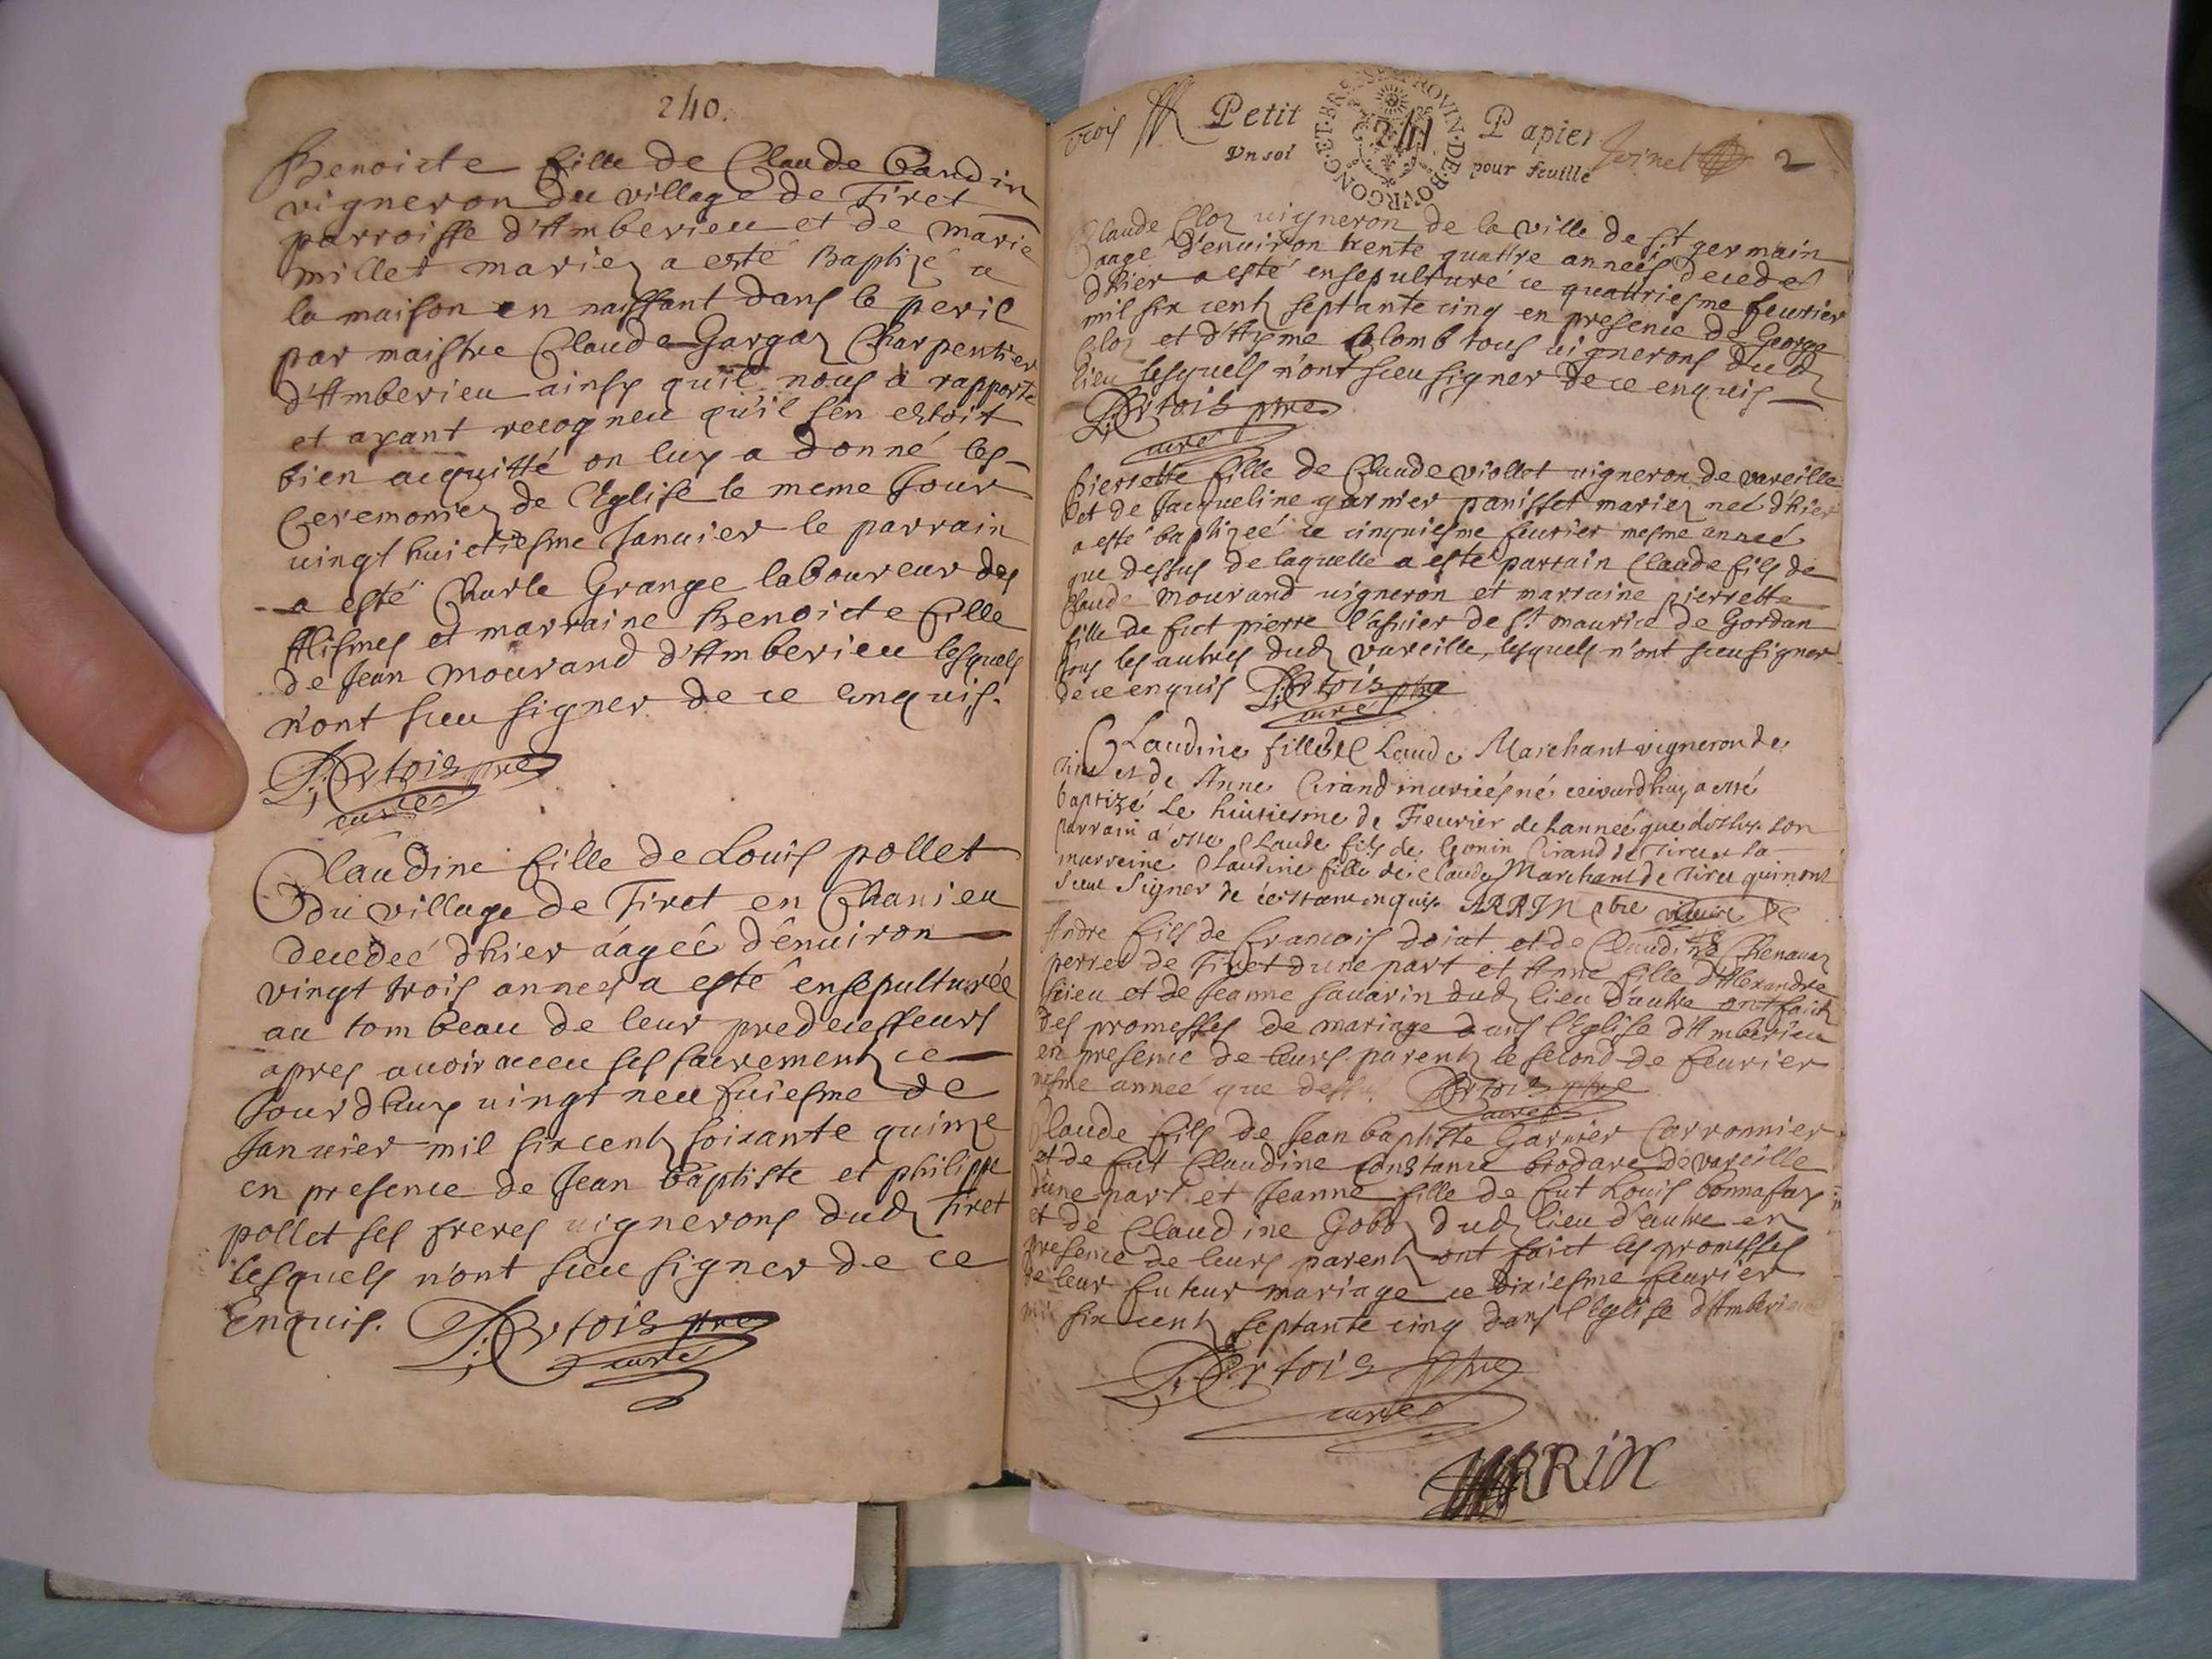 240.
Benoicte fille de Claude Gandin
vigneron du village de Tiret
parroisse d'Amberieu et de marie
millet mariez a esté Baptizé a
la maison en naissant dans le peril
par maistre Claude Gargaz Charpentier
d'Amberieu ainsy qu'il nous à rapporté
et ayant recogneu qu'il s'en estoit
bien acquitté on luy a donné les
Ceremonies de l'Eglise le meme Jour
vingt huictiesme Janvier le parrain
a esté Charle Grange laboureur des
Alismes et marraine Benoicte fille
de Jean Mourand d'Amberieu lesquels
n'ont sceu signer de ce enquis.
curé
Claudine fille de Louis pollet
du village de Tiret en Chanieu
decedeé dhier áageê d'environ
vingt trois anneés a esté ensepulturée
au tombeau de leur predecesseurs
apres avoir receu ses sacrements ce
Jourdhuy vingt neufuiesme de
Janvier mil six cents soixante quinze
en presence de Jean Baptiste et philippe
pollet ses freres vignerons dud. Tiret
lesquels n'ont sceu signer de ce
Enquis.
curé
Trois Petit Papier 2
241
Un sol pour feuille
GENERALITE PROVIN·DE·BOVRGONG·ET·BRESSE
Claude Cloz vigneron de la ville de St germain
aagé d'environ trente quattre anneés decedé
dhier a esté ensepulturé ce quattriesme feurier
mil six cents septante cinq en presence de George
Cloz et d'Ayme Colomb tous vignerons dud.
lieu lesquels n'ont sceu signer de ce enquis
curé
Pierrette fille de Claude viollet vigneron de vareille
et de Jacqueline garnier panisset mariez neé dhier
a esté baptizeé ce cinquiesme feurier mesme anneé
que dessus de laquelle a esté parrain Claude fils de
Claude Mourand vigneron et marraine pierrette
fille de fut pierre l'asnier de St maurice de Gordan
tous les autres dud. vareille, lesquels n'ont sceu signer
de ce enquis
curé
Claudine fille de Claude Marchant vigneron de
Tiret et de Anne Cirand marieés né ceiourdhuy a esté
baptizé Le huitiesme de Feurier de Lanneé que dessus son
parrain a esté Claude fils de Gonin Cirand de Tiret et sa
marreine Claudine fille de Claude Marchant de Tiret qui nont
sceut signer de ce enquis. ARRIN ptre vicaire
Andre fils de francois doiat et de Claudine Chenavaz
perret de Tiret d'une part et Anne fille d'Alexandre
et de Jeanne savarin dud. lieu d'autre ont faict
des promesses de mariage dans l'Eglise d'Amberieu
en presence de leurs parents le second de feurier
mesme anneé que dessus.
curé
Claude fils de Jean baptiste Garnier Carronnier
et de fut Claudine Constance brodare de vareille
d'une part et Jeanne fille de fut Louis bonnafay
et de Claudine Goboz dud. lieu d'autre en
presence de leurs parents ont faict les promesses
de leur futeur mariage ce dixiesme feurier
mil six cents septante cinq dans l'Eglise d'Amberieu
curé
ARRIN